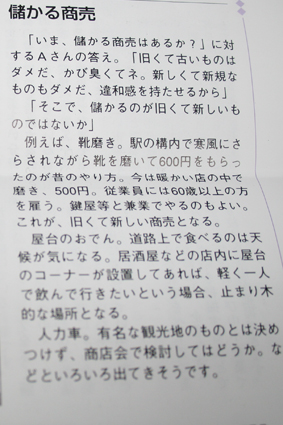 儲かる商売
「いま、儲かる商売はあるか？」に対
するAさんの答え。「旧くて古いものは
ダメだ、かび臭くてネ。新しくて新規な
ものもダメだ、違和感を持たせるから」
「そこで、儲かるのが旧くて新しいも
のではないか」
例えば、靴磨き。駅の構内で寒風にさ
らされながら靴を磨いて600円をもらっ
たのが昔のやり方。今は暖かい店の中で
磨き、500円。従業員には60歳以上の方
を雇う。鍵屋等と兼業でやるのもよい。
これが、旧くて新しい商売となる。
屋台のおでん。道路上で食べるのは天
候が気になる。居酒屋などの店内に屋台
のコーナーが設置してあれば、軽く一人
で飲んで行きたいという場合、止まり木
的な場所となる。
人力車。有名な観光地のものとは決め
つけず、商店会で検討してはどうか。な
どといろいろ出てきそうです。